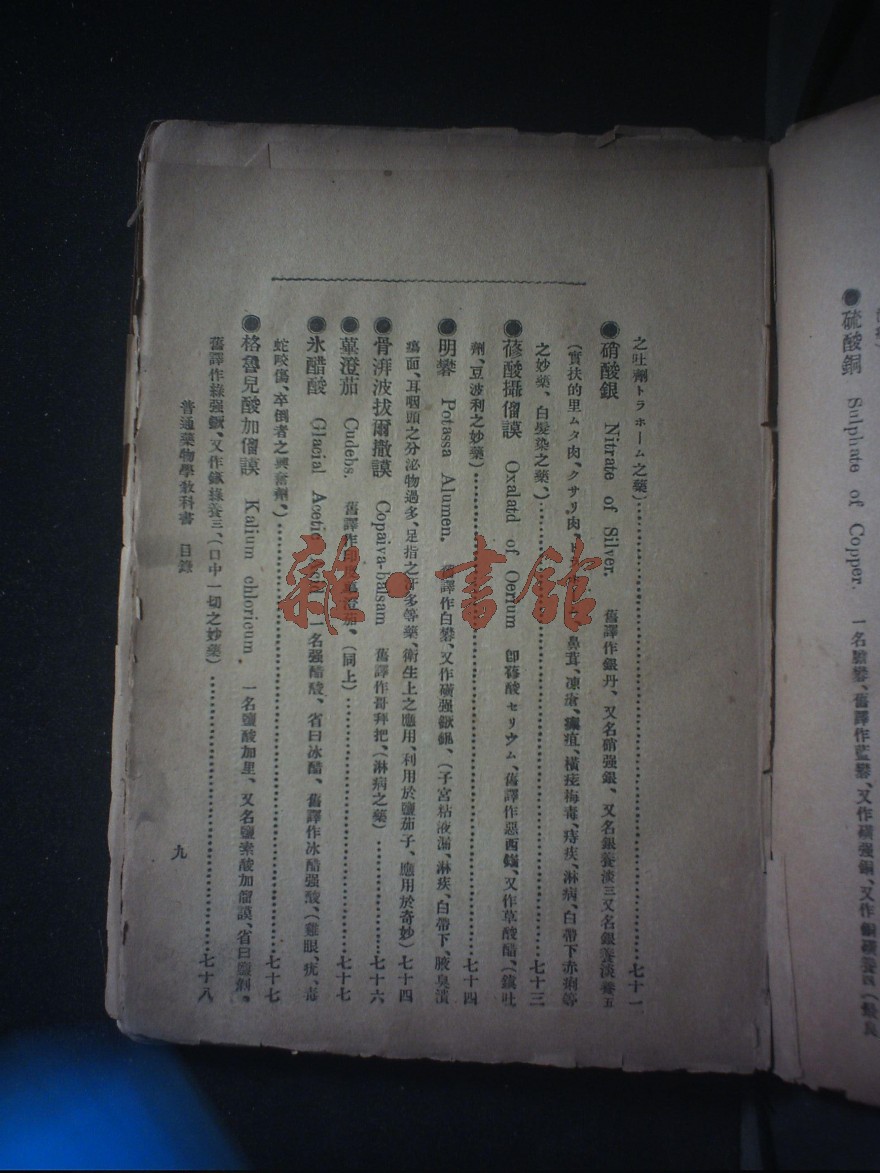 ●硫酸銅 Sulphate of Copper. 一名膽礬、舊譯作藍礬、又作磺强銅、又作銅磺養四
之吐劑トラホーム之藥)……七十一
●硝酸銀 Nitrate of Silver. 舊譯作銀丹、又名硝强銀、又名銀養淡三又名銀養淡養五
(實扶的里ムタ肉、クサリ肉、鼻茸、凍瘡、橫痃梅毒、痔疾、淋病、白帶下赤痢等
之妙藥、白髮染之藥、)……七十三
●蓚酸攝僧謨 Oxalatd of Oerium 卽蓚酸セリウム、舊譯作惡西、又作草酸醋、(鎮吐
劑、豆波利之妙藥)……七十四
●明礬 Potassa Alumen. 舊譯作白礬、又作磺强、(子宮粘液漏、淋疾、白帶下、腋臭潰
瘍面、耳咽頭之分泌物過多、足指之汗多等藥、衛生上之應用、利用於鹽茄子、應用於奇妙)七十四
●骨湃波拔爾撒謨 Copaiva-balsam 舊譯作哥拜把、(淋病之藥)……七十六
●蓽澄茄 Cudebs. 舊譯作澄茄、(同上)……七十七
●氷醋酸 Glacial Acetic 一名强醋酸、省曰冰醋、舊譯作冰醋强酸、(雞眼、疣、毒
蛇咬傷、卒倒者之興奮劑、)……七十七
●格魯兒酸加僧謨 Kalium chloricum. 一名鹽酸加里、又名鹽素酸加僧謨、省曰鹽剝、
舊譯作綠强、又作綠養三、(口中一切之妙藥)……七十八
普通藥物學敎科書 目錄
九
雜·書館